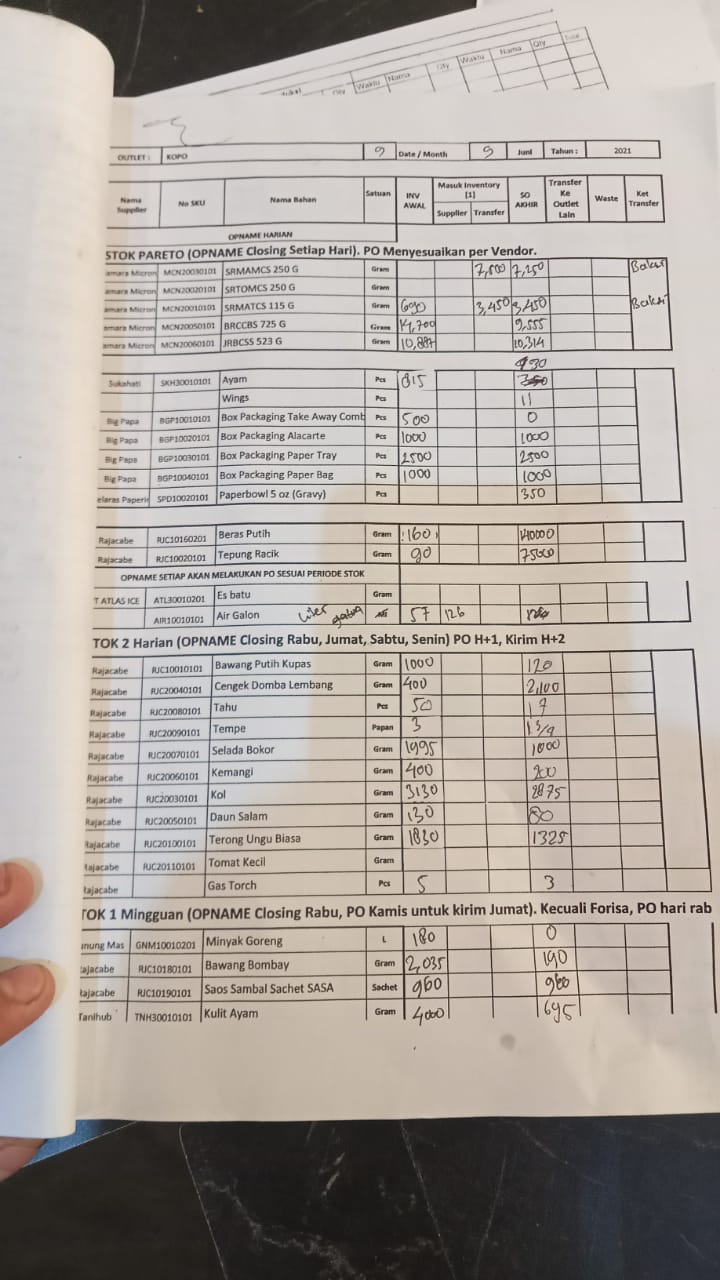 Waktu Nama Qty Waktu Nama Qty Total
OUTLET : KOPO 9 Date / Month 9 Juni Tahun : 2021
Nama Supplier No SKU Nama Bahan Satuan INV AWAL Masuk Inventory (1) Supplier Transfer SO AKHIR Transfer Ke Outlet Lain Waste Ket Transfer
OPNAME HARIAN
STOK PARETO (OPNAME Closing Setiap Hari). PO Menyesuaikan per Vendor.
amara Micron MCN20030101 SRMAMCS 250 G Gram 7,500 7,250
amara Micron MCN20020101 SRTOMCS 250 G Gram
amara Micron MCN20010101 SRMATCS 115 G Gram 690 3,450 3,450
amara Micron MCN20050101 BRCCBS 725 G Gram 14,700 9,555
amara Micron MCN20060101 JRBCSS 523 G Gram 10,887 10,314
Sukahati SKH30010101 Ayam Pcs 815
Wings Pcs 11
Big Papa BGP10010101 Box Packaging Take Away Comb Pcs 500 0
Big Papa BGP10020101 Box Packaging Alacarte Pcs 1000 1000
Big Papa BGP10030101 Box Packaging Paper Tray Pcs 2500 2500
Big Papa BGP10040101 Box Packaging Paper Bag Pcs 1000 1000
elaras Paperi SPD10020101 Paperbowl 5 oz (Gravy) Pcs 350
Rajacabe RJC10160201 Beras Putih Gram 160
Rajacabe RJC10020101 Tepung Racik Gram 90
OPNAME SETIAP AKAN MELAKUKAN PO SESUAI PERIODE STOK
T ATLAS ICE ATL30010201 Es batu Gram
AIR10010101 Air Galon 57 126
TOK 2 Harian (OPNAME Closing Rabu, Jumat, Sabtu, Senin) PO H+1, Kirim H+2
Rajacabe RJC10010101 Bawang Putih Kupas Gram 1000 120
Rajacabe RJC20040101 Cengek Domba Lembang Gram 400 2,100
Rajacabe RJC20080101 Tahu Pcs 50 17
Rajacabe RJC20090101 Tempe Papan 3
Rajacabe RJC20070101 Selada Bokor Gram 1995 1000
Rajacabe RJC20060101 Kemangi Gram 400 200
Rajacabe RJC20030101 Kol Gram 3130 2875
Rajacabe RJC20050101 Daun Salam Gram 130 80
Rajacabe RJC20100101 Terong Ungu Biasa Gram 1830 1325
Rajacabe RJC20110101 Tomat Kecil Gram
Rajacabe Gas Torch Pcs 5 3
TOK 1 Mingguan (OPNAME Closing Rabu, PO Kamis untuk kirim Jumat). Kecuali Forisa, PO hari rab
unung Mas GNM10010201 Minyak Goreng L 180 0
ajacabe RJC10180101 Bawang Bombay Gram 2,035 190
ajacabe RJC10190101 Saos Sambal Sachet SASA Sachet 960 960
Tanihub TNH30010101 Kulit Ayam Gram 4000 695